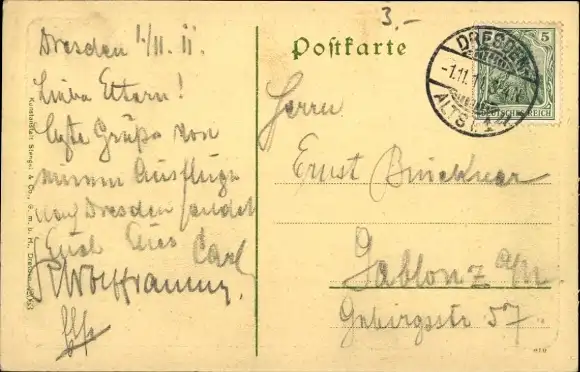 3.-
Dresden 1/11. 11.
Liebe Eltern!
Grüße von
meinem Ausfluge
nach Dresden sendet
Euch Euer Carl
Postkarte
DRESDEN
-1.11.11. 3-4 N
ALTST. 1
5
DEUTSCHES REICH
Herrn
Ernst
Gablonz a/N.
Gebirgsstr 57.
Kunstanstalt Stengel & Co., G. m. b. H., Dresden